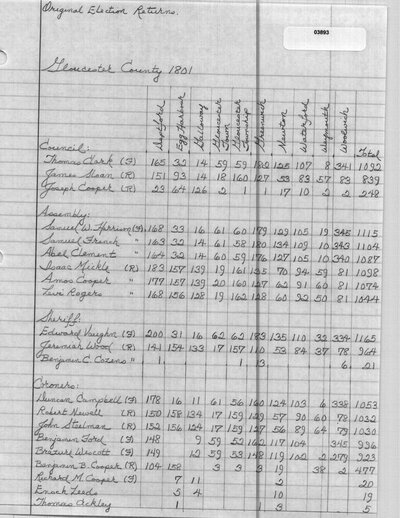 Original Election Returns.
03893
Gloucester County 1801
Deptford Egg Harbour Galloway Gloucester Town Gloucester Township Greenwich Newton Waterford Weymouth Woolwich Total
Council:
Thomas Clark (F) 165 32 14 59 59 182 125 107 8 341 1092
James Sloan (R) 151 93 14 18 160 127 53 83 57 83 839
Joseph Cooper (R) 23 64 126 2 1 17 10 2 2 248
Assembly:
Samuel W. Harrison (F) 168 33 16 61 60 179 129 105 19 345 1115
Samuel French " 163 32 14 61 58 180 134 109 10 343 1104
Abel Clement " 164 32 14 60 59 176 127 105 10 340 1087
Isaac Mickle (R) 183 157 139 19 161 125 70 94 59 81 1098
Amos Cooper " 177 157 139 20 160 127 62 91 60 81 1074
Levi Rogers " 168 156 128 19 162 128 60 92 50 81 1044
Sheriff:
Edward Vaughn (F) 200 31 16 62 62 183 135 110 32 334 1165
Jeremiar Wood (R) 141 154 133 17 157 110 53 84 37 78 964
Benjamin C. Cozens " 1 1 3 6 21
Coroners:
Duncan Campbell (F) 178 16 11 61 56 160 124 103 6 338 1053
Robert Newell (R) 150 158 134 17 159 129 57 90 60 78 1032
John Steelman (R) 152 156 124 17 159 127 56 89 64 79 1030
Benjamin Ford (F) 148 9 59 52 162 117 104 345 996
Brazure Wescott (F) 149 12 59 53 148 119 102 2 279 923
Benjamin B. Cooper (R) 104 158 3 3 3 19 38 2 477
Richard M. Cooper (F) 7 11 2 20
Enoch Leeds 5 4 10 19
Thomas Ackley 1 3 5